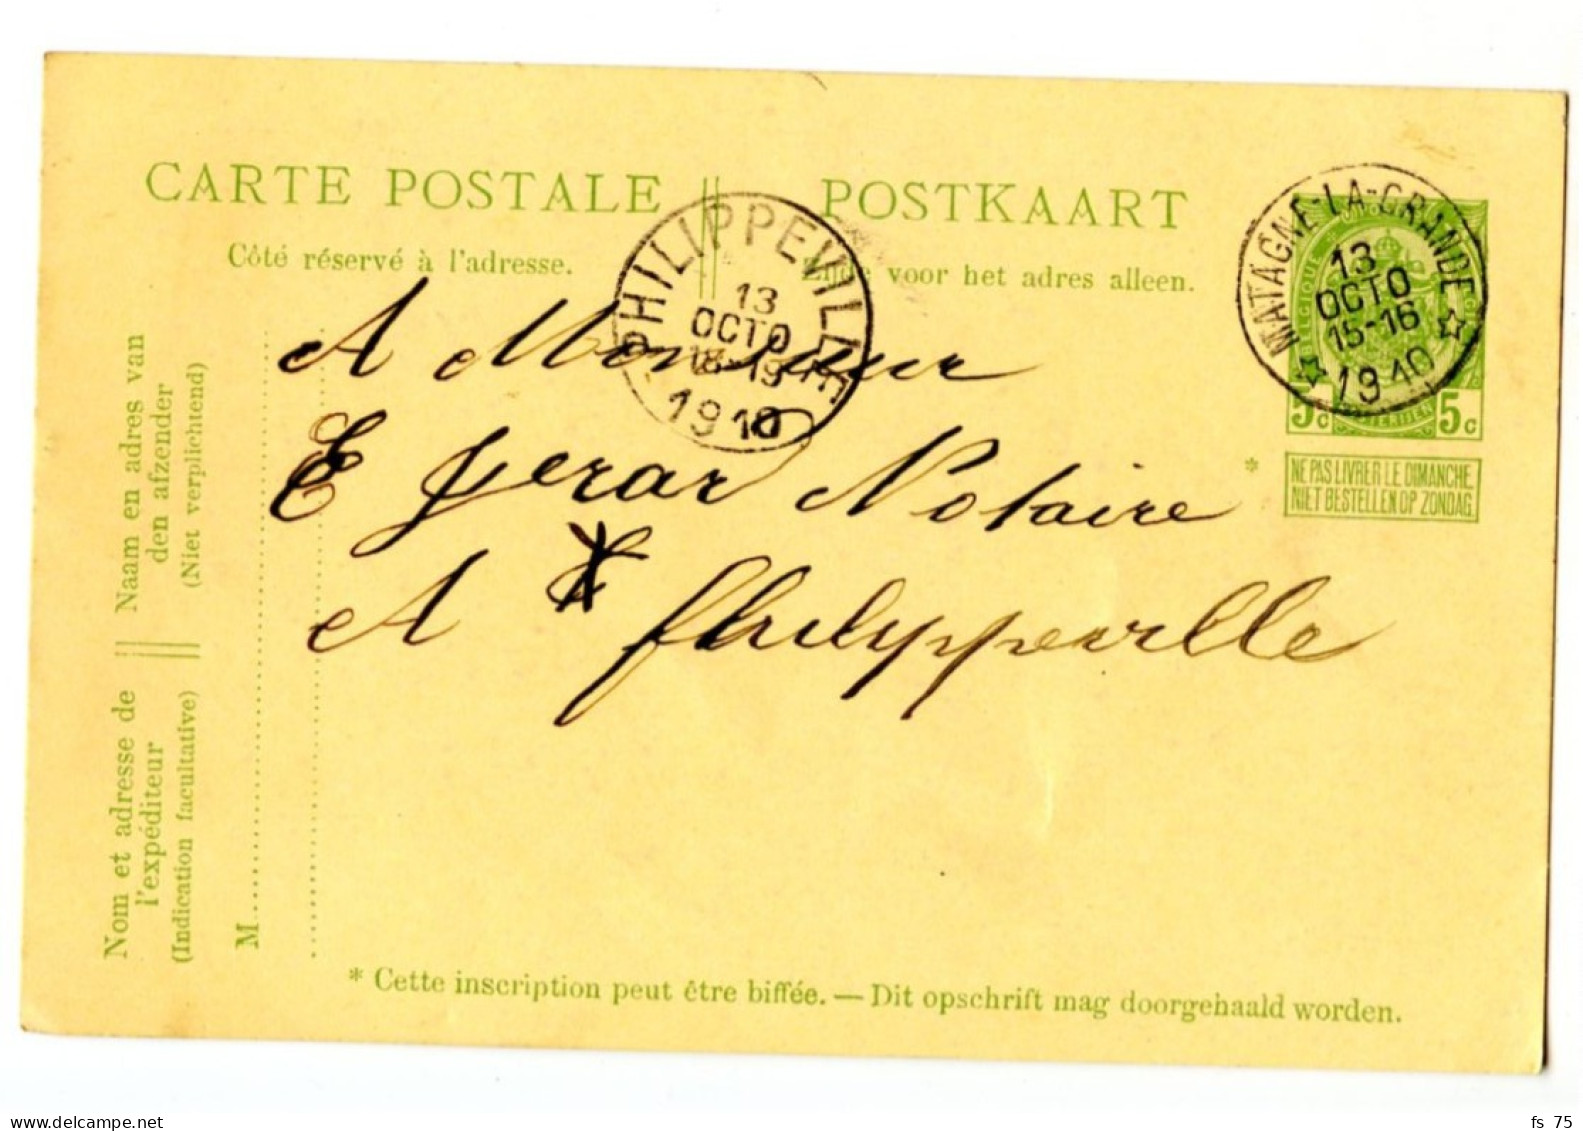 CARTE POSTALE POSTKAART
Côté réservé à l'adresse. Zijde voor het adres alleen.
PHILIPPEVILLE
13
OCTO
18-19
1910
MATAGNE-LA-GRANDE
13
OCTO
15-16
1910
BELGIQUE
5c 5c
NE PAS LIVRER LE DIMANCHE.
NIET BESTELLEN OP ZONDAG.
*
A Monsieur
E Gerar Notaire
A Philyppeville
Naam en adres van
den afzender
(Niet verplichtend)
Nom et adresse de
l'expéditeur
(Indication facultative)
M
* Cette inscription peut être biffée. — Dit opschrift mag doorgehaald worden.
delcampe.net
fs 75